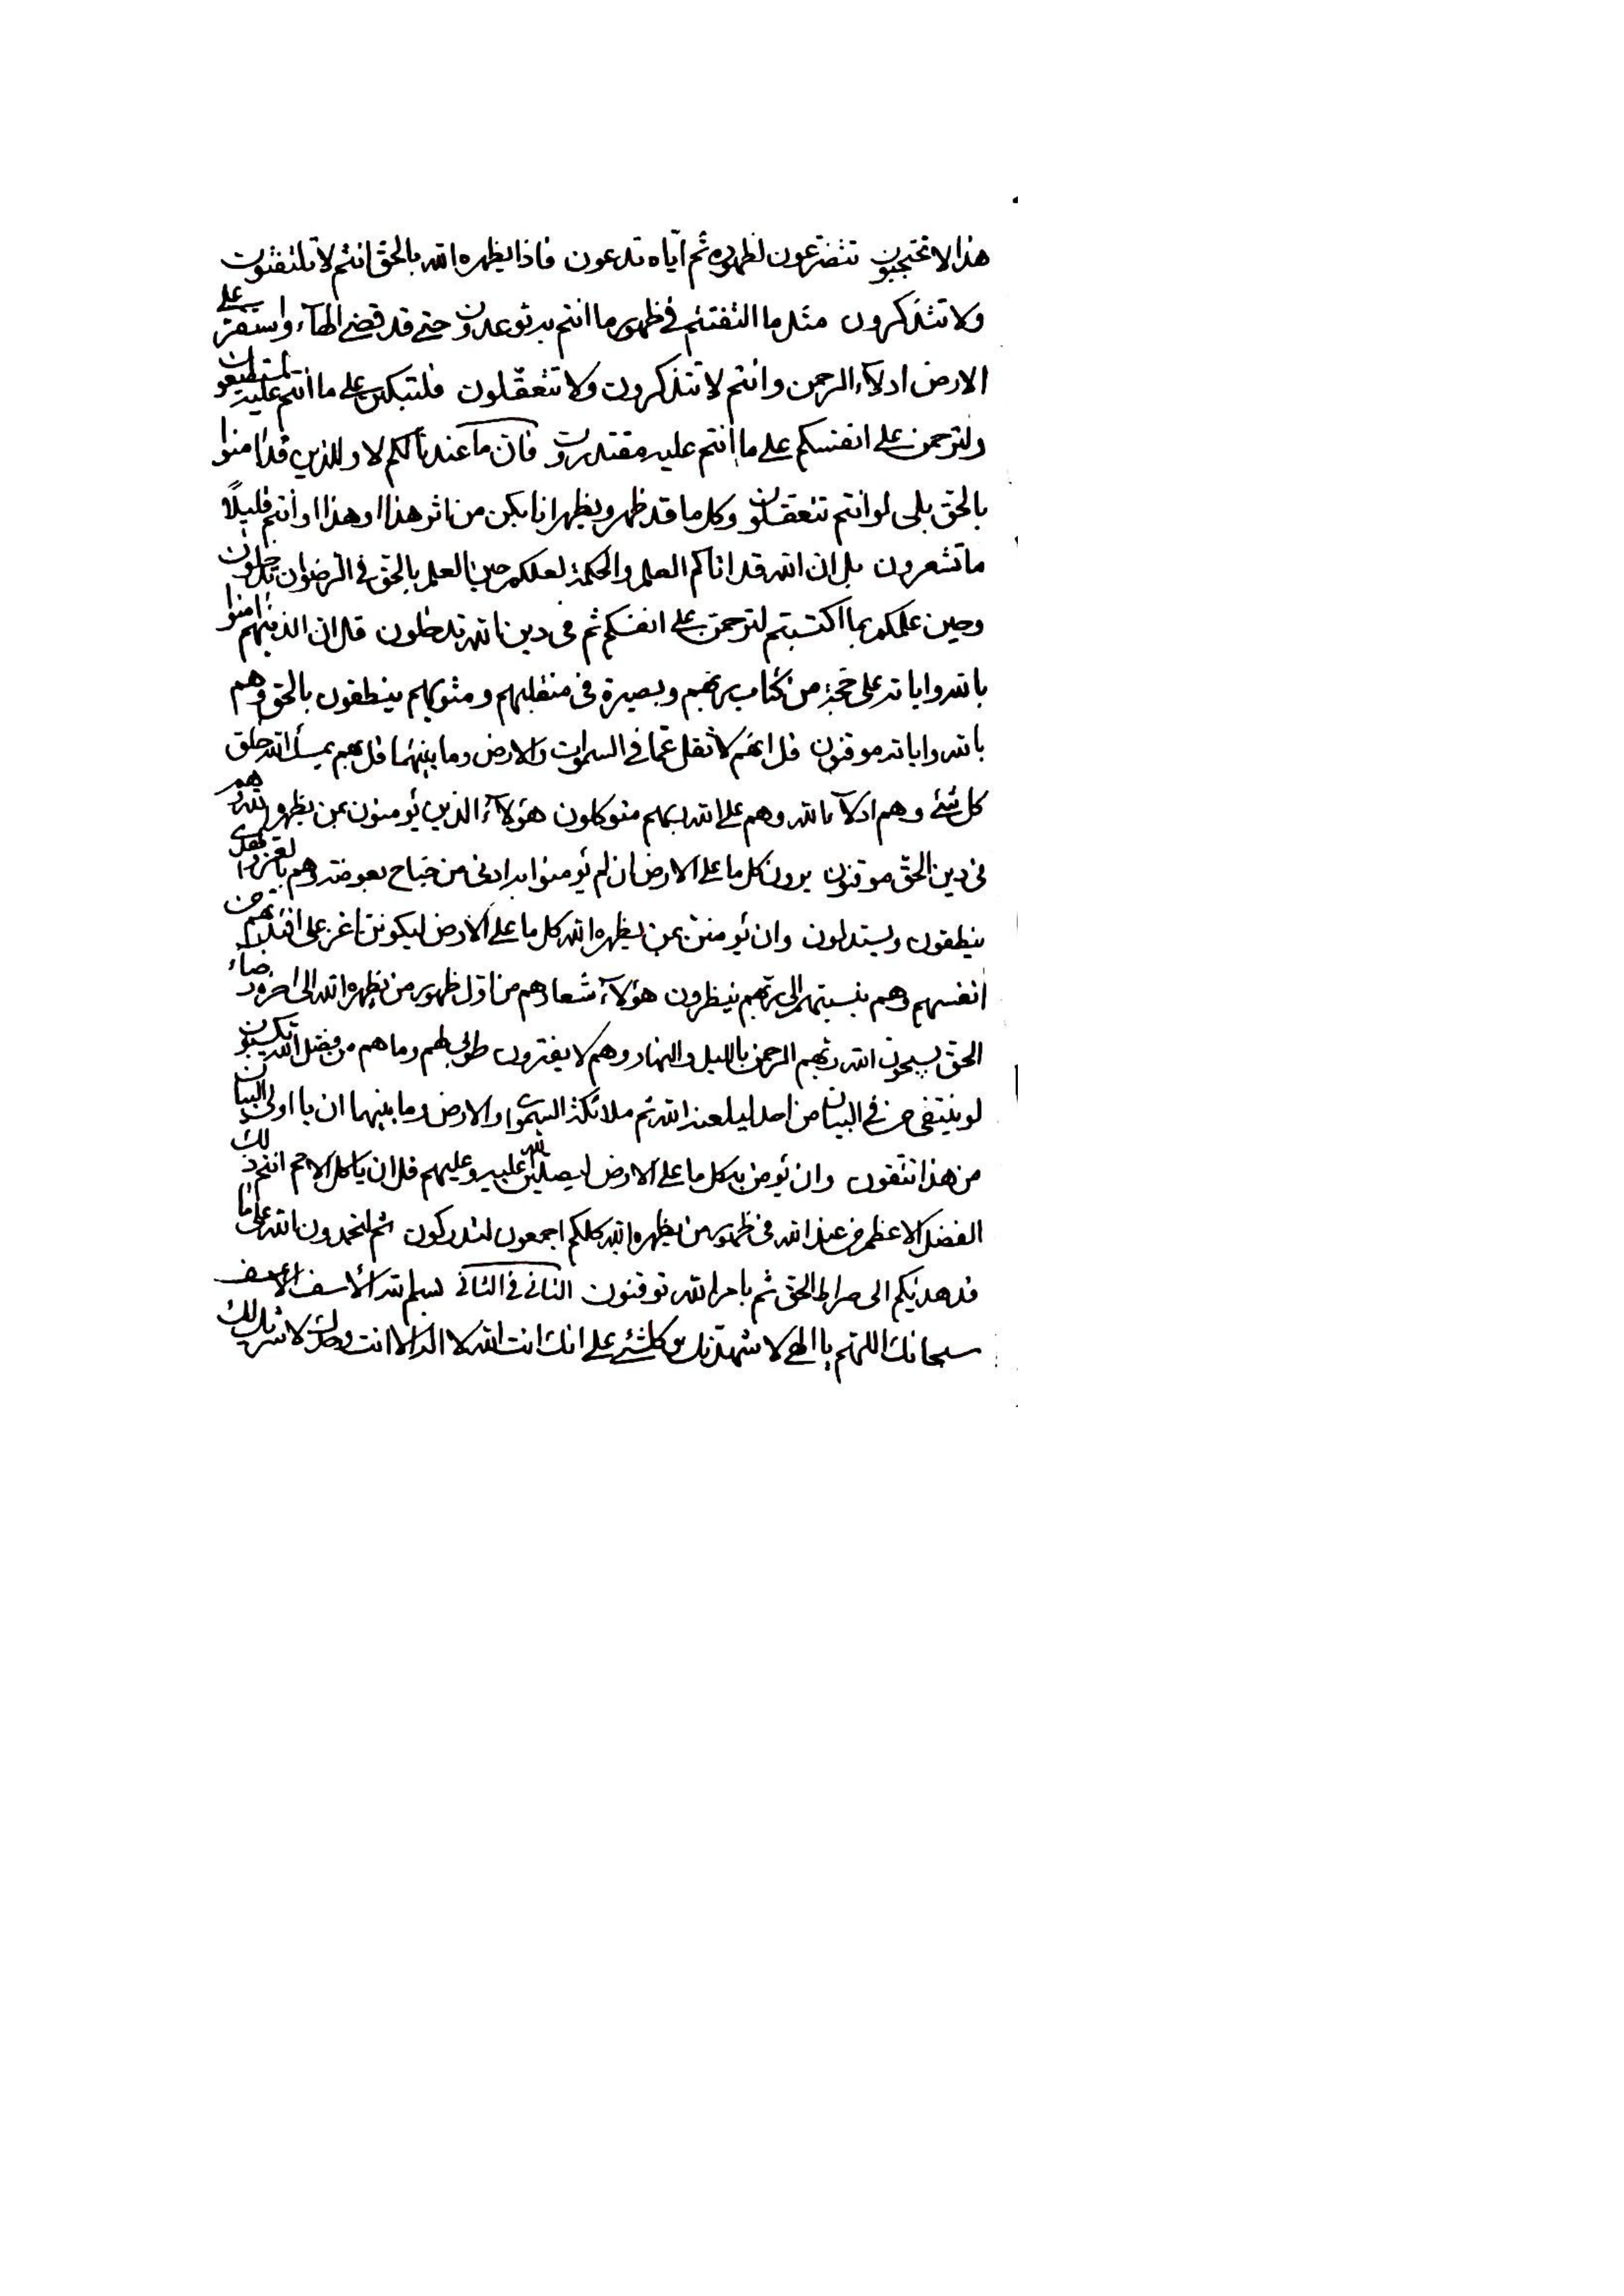 هذا لا تحتجبون تتضرعون لظهوره ثم اياه تدعون فاذا يظهره الله بالحق انتم لا تلتفتون
ولا تتذكرون مثل ما التفتتم في ظهور ما انتم به توعدون حتى قد قضى الهآء واستقر على
الارض ادلاء الرحمن وانتم لا تتذكرون ولا تتعقلون فلتبكين على ما انتم عليه لمستطيعون
ولترحمن على انفسكم على ما انتم عليه مقتدرون فان ما عندنا لكم لا وللذين قد امنوا
بالحق بلى لو انتم تتعقلون وكل ما قد ظهر ويظهر انا يكن من اثر هذا او هذا او انتم قليلًا
ما تشعرون بل ان الله قد اتاكم العلم والحكمة لعلكم حين العلم بالحق في الرضوان تدخلون
وحين علمكم بما اكتسبتم لترحمن على انفسكم ثم في دين الله تدخلون قل ان الذينهم امنوا
بالله واياته على حجة من كتاب ربهم وبصيرة في منقلبهم ومثويهم ينطقون بالحق وهم
بالله واياته موقنون قل انهم لا ثقل عما في السموات والارض وما بينهما قل بهم يمسك الله خلق
كل شئ وهم ادلآء بالله وهم على الله ربهم متوكلون هؤلآء الذين يؤمنون بمن يظهره الله وهم
في دين الحق موقنون يرون كل ما على الارض ان لم يؤمنوا به ادنى من جناح بعوضة وهم بالهدى
ينطقون ويستدلون وان يؤمنن بمن يظهره الله كل ما على الارض ليكونن اعز على افئدتهم من
انفسهم وهم بنسبتهم الى ربهم ينظرون هؤلآء شعارهم من اول ظهور من يظهره الله الى اخره رضاء
الحق يسبحون الله ربهم الرحمن بالليل والنهار وهم لا يفترون طوبى لهم وما هم من فضل الله يكتسبون
لو ينتفى من في البيان من احد ليلعنه الله ثم ملائكة السموات والارض وما بينهما ان يا اولى البيان
من هذا تتقون وان يؤمن به كل ما على الارض ليصلين الله عليه وعليهم قل ان يا كل الامم انتم ذلك
الفضل الاعظم من عند الله في ظهور من يظهره الله كلكم اجمعون لتدركون ثم لتحمدون الله على ما
قد هديكم الى صراط الحق ثم بامر الله توقنون الثاني في الثاني بسم الله الأسف الأسف
سبحانك اللهم يا الهي لاشهدنك وكلشئ على انك انت الله لا اله الا انت وحدك لا شريك لك